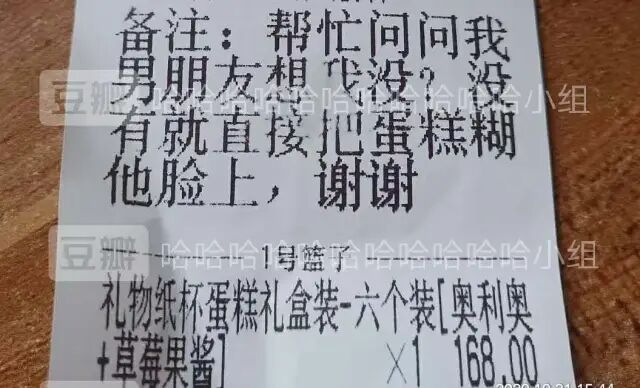 备注：帮忙问问我
男朋友想我没？没
有就直接把蛋糕糊
他脸上，谢谢
1号篮子
礼物纸杯蛋糕礼盒装-六个装[奥利奥
+草莓果酱] ×1 168.00
豆瓣 哈哈哈哈哈哈哈哈哈哈小组
豆瓣 哈哈哈哈哈哈哈哈哈哈小组